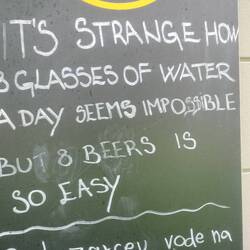 IT'S STRANGE HOW
8 GLASSES OF WATER
A DAY SEEMS IMPOSSIBLE
BUT 8 BEERS IS
SO EASY
vode na